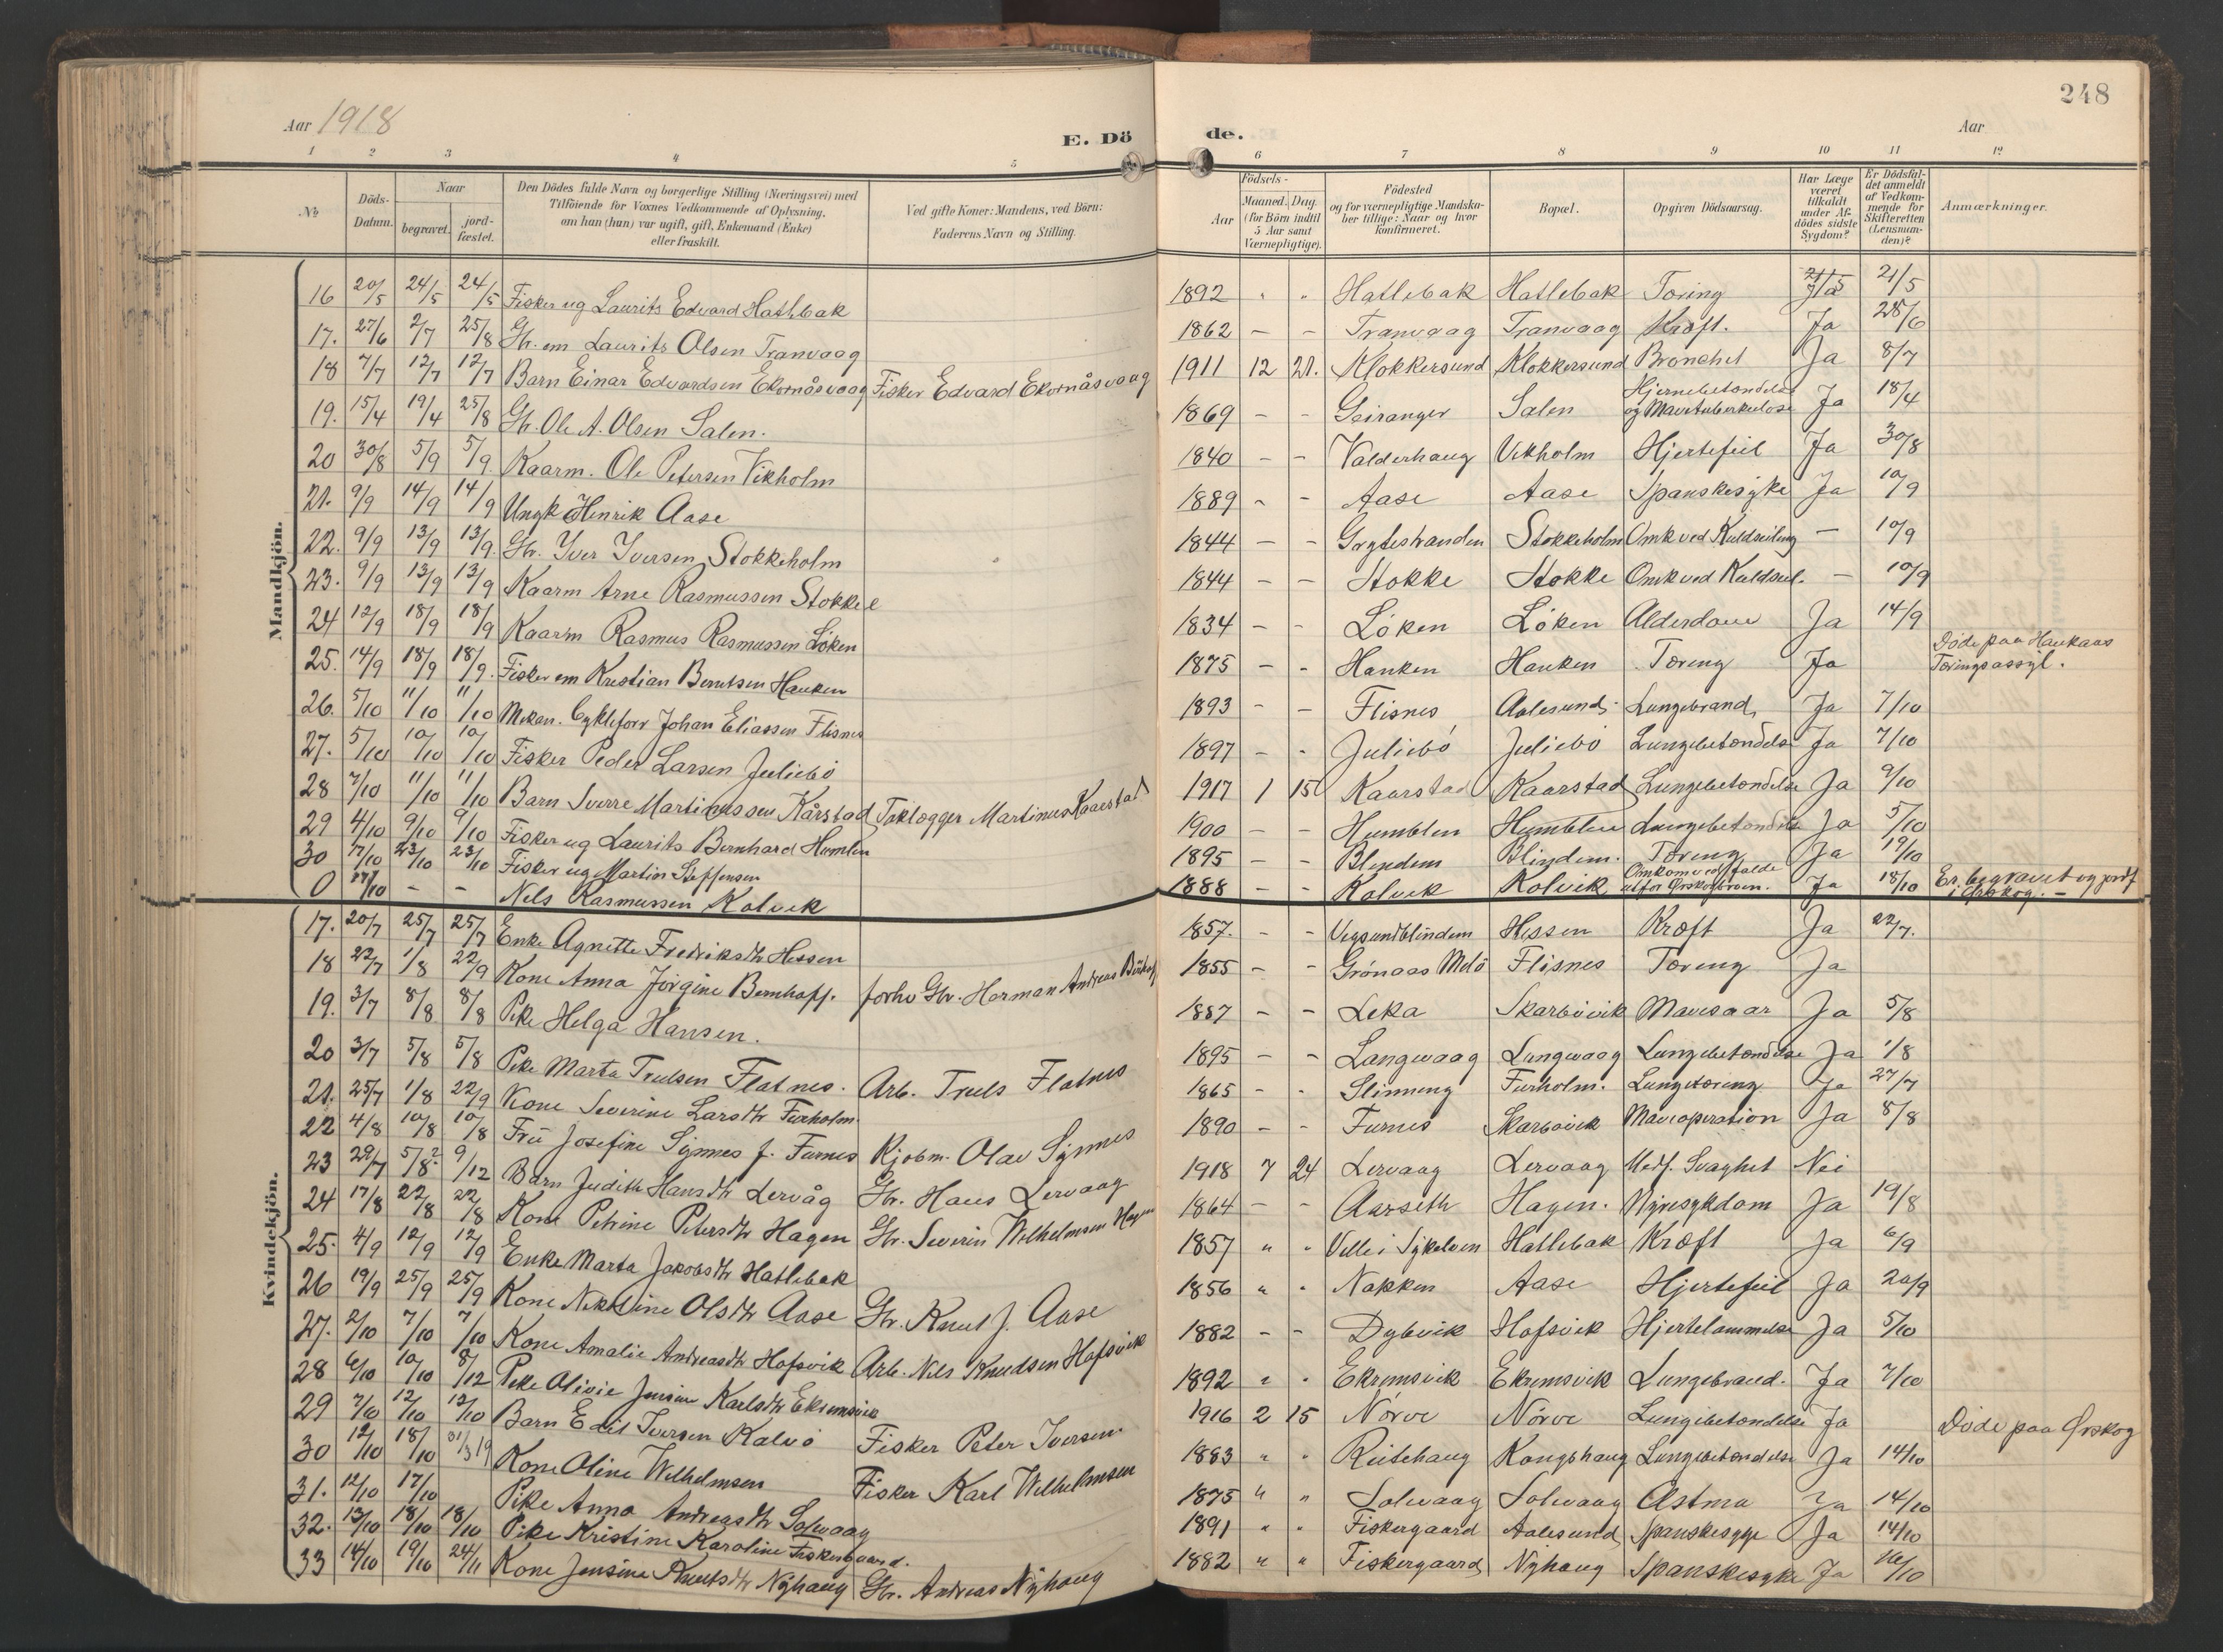 248
Aar 1918
E. Dö de.
Aar
1 2 3 4 5 6 7 8 9 10 11 12
№
Döds-Datum.
Naar
begravet.
jord-fæstet.
Den Dödes fulde Navn og borgerlige Stilling (Næringsvei) med
Tilföiende for Voxnes Vedkommende af Oplysning,
om han (hun) var ugift, gift, Enkemand (Enke)
eller fraskilt.
Ved gifte Koner: Mandens, ved Börn:
Faderens Navn og Stilling.
Födsels-
Aar
Maaned. Dag.
(for Börn indtil
5 Aar samt
Værnepligtige).
Födested
og for værnepligtige Mandska-
ber tillige: Naar og hvor
konfirmeret.
Bopæl.
Opgiven Dödsaarsag.
Har Læge
været
tilkaldt
under Af-
dödes sidste
Sygdom?
Er Dödsfal-
det anmeldt
af Vedkom-
mende for
Skifteretten
(Lensman-
den)?
Anmærkninger.
Mandkjön.
16 20/5 24/5 24/5 Fisker ug Laurits Edvard Hatlebak 1892 " " Hatlebak Hatlebak Tæring Ja 21/5
17. 27/6 2/7 25/8 Gbr. em Laurits Olsen Tranvaag 1862 – – Tranvaag Tranvaag Kræft. Ja 28/6
18 7/7 12/7 12/7 Barn Einar Edvardsen Ekornåsvaag Fisker Edvard Ekornåsvaag 1911 12 21. Klokkersund Klokkersund Bronchit Ja 8/7
19. 15/4 19/4 25/8 Gbr. Ole A. Olsen Salen. 1869 – – Geiranger Salen Hjernebetændelse og Mavetuberkulose Ja 18/4
20 30/8 5/9 5/9 Kaarm. Ole Petersen Vikholm 1840 – – Valderhaug Vikholm Hjertefeil Ja 30/8
21. 9/9 14/9 14/9 Ungk Henrik Aase 1889 – – Aase Aase Spanskesyke Ja 10/9
22. 9/9 13/9 13/9. Gbr. Iver Iversen Stokkeholm 1844 – – Grytestranden Stokkeholm Omk ved Kuldseiling – 10/9
23. 9/9 13/9 13/9 Kaarm Arne Rasmussen Stokke 1844 – – Stokke Stokke Omk ved Kuldseil. – 10/9
24 12/9 18/9 18/9 Kaarm Rasmus Rasmussen Löken 1834 – – Löken Löken Alderdom Ja 14/9
25. 14/9 18/9 18/9. Fisker em Kristian Berntsen Hanken 1875 – – Hanken Hanken Tæring Ja Döde paa Haukaas Tæringsassyl.
26. 5/10 11/10 11/10 Mekan. Cykleforr Johan Eliassen Flisnes 1893 – – Flisnes Aalesund Lungebrand Ja 7/10
27. 5/10 10/10 10/10 Fisker Peder Larsen Juliebö 1897 – – Juliebö Juliebö Lungebetændelse Ja 7/10
28 7/10 11/10 11/10 Barn Sverre Martinussen Kårstad Taklægger Martinus Kaarstad 1917 1 15 Kaarstad Kaarstad Lungebetændelse Ja 9/10
29 4/10 9/10 9/10 Fisker ug Laurits Bernhard Humlen 1900 – – Humblen Humblen Lungebetændelse Ja 5/10
30 17/10 23/10 23/10 Fisker ug Martin Steffensen 1895 – – Blindem Blindem. Tæring Ja 19/10
0 17/10 – – Nils Rasmussen Kalvik 1888 – – Kolvik Kolvik Omkom ved falde utfor Ja 18/10 Er begravet og jordf i Ørskog. –
Kvindekjön.
17. 20/7 25/7 25/7 Enke Agnette Fredriksdtr Hessen 1857. – – Vegsundblindem Hessen Kræft Ja 22/7.
18 22/7 1/8 22/9 Kone Anna Jörgine Bernhoff. forhv Gbr. Herman Andreas 1855 – – Grönaas Flisnes Tæring Ja
19. 3/7 8/8 8/8 Pike Helga Hansen. 1887 – – Leka Skarbövik Mavesaar Ja 5/8
20 3/7 5/8 5/8 Pike Marta Trulsen Flatnes. Arb. Truls Flatnes 1895 – – Langevaag Langevaag Lungebetændelse Ja 1/8
21. 25/7 1/8 22/9 Kone Severine Larsdtr Furholm. 1865 – – Slinning Furholm. Lungetæring Ja 27/7
22 4/8 10/8 10/8 Frü Josefine Synnes f. Furnes Kjöbm. Olav Synnes 1890 – – Furnes Skarbövik Maveoperation Ja 8/8
23 29/7 5/8 2. 9/12 Barn Judith Hansdtr Lervåg Gbr. Hans Lervaag 1918 7 24 Lervaag Lervaag Medf. Svaghet Nei
24 17/8 22/8 22/8 Kone Petrine Petersdtr Hagen Gbr. Severin Wilhelmsen Hagen 1864 – – Aarseth Hagen. Nyresykdom Ja 19/8
25. 4/9 12/9 12/9 Enke Marta Jakobsdtr Hatlebak 1857 " " Velle i Sykelven Hatlebak Kræft Ja 6/9
26 19/9 25/9 25/9 Kone Nikoline Olsdtr Aase Gbr. Knut J. Aase 1856 " " Nakken Aase Hjertefeil Ja 20/9
27. 2/10 7/10 7/10 Kone Amalie Andreasdtr Hofsvik Arb. Nils Knudsen Hofsvik 1882 – – Dybvik Hofsvik Hjertelammelse Ja 5/10
28 6/10 10/10 8/12 Pike Olivie Jensine Karlsdtr Ekremsvik 1892 " " Ekremsvik Ekremsvik Lungebrand. Ja 7/10
29 7/10 12/10 12/10 Barn Edit Iversen Kalvö Fisker Peter Iversen. 1916 2 15 Nörve Nörve Lungebetændelse Ja Döde paa Ørskog
30 12/10 18/10 31/3 19 Kone Oline Wilhelmsen Fisker Karl Wilhelmsen 1883 " " Reitehaug Kongshaug Lungebetændelse Ja 14/10
31. 12/10 17/10 Pike Anna Andreasdtr Solevaag 1875 " " Solevaag Solevaag Astma Ja 14/10
32. 13/10 18/10 18/10 Pike Kristine Karoline Fiskergaard. 1891 " " Fiskergaard Aalesund Spanskesyge Ja 14/10
33 14/10 19/10 24/11 Kone Jensine Knutsdtr Nyhaug Gbr. Andreas Nyhaug 1882 " " Fiskergaard Nyhaug Spanskesyke Ja 16/10